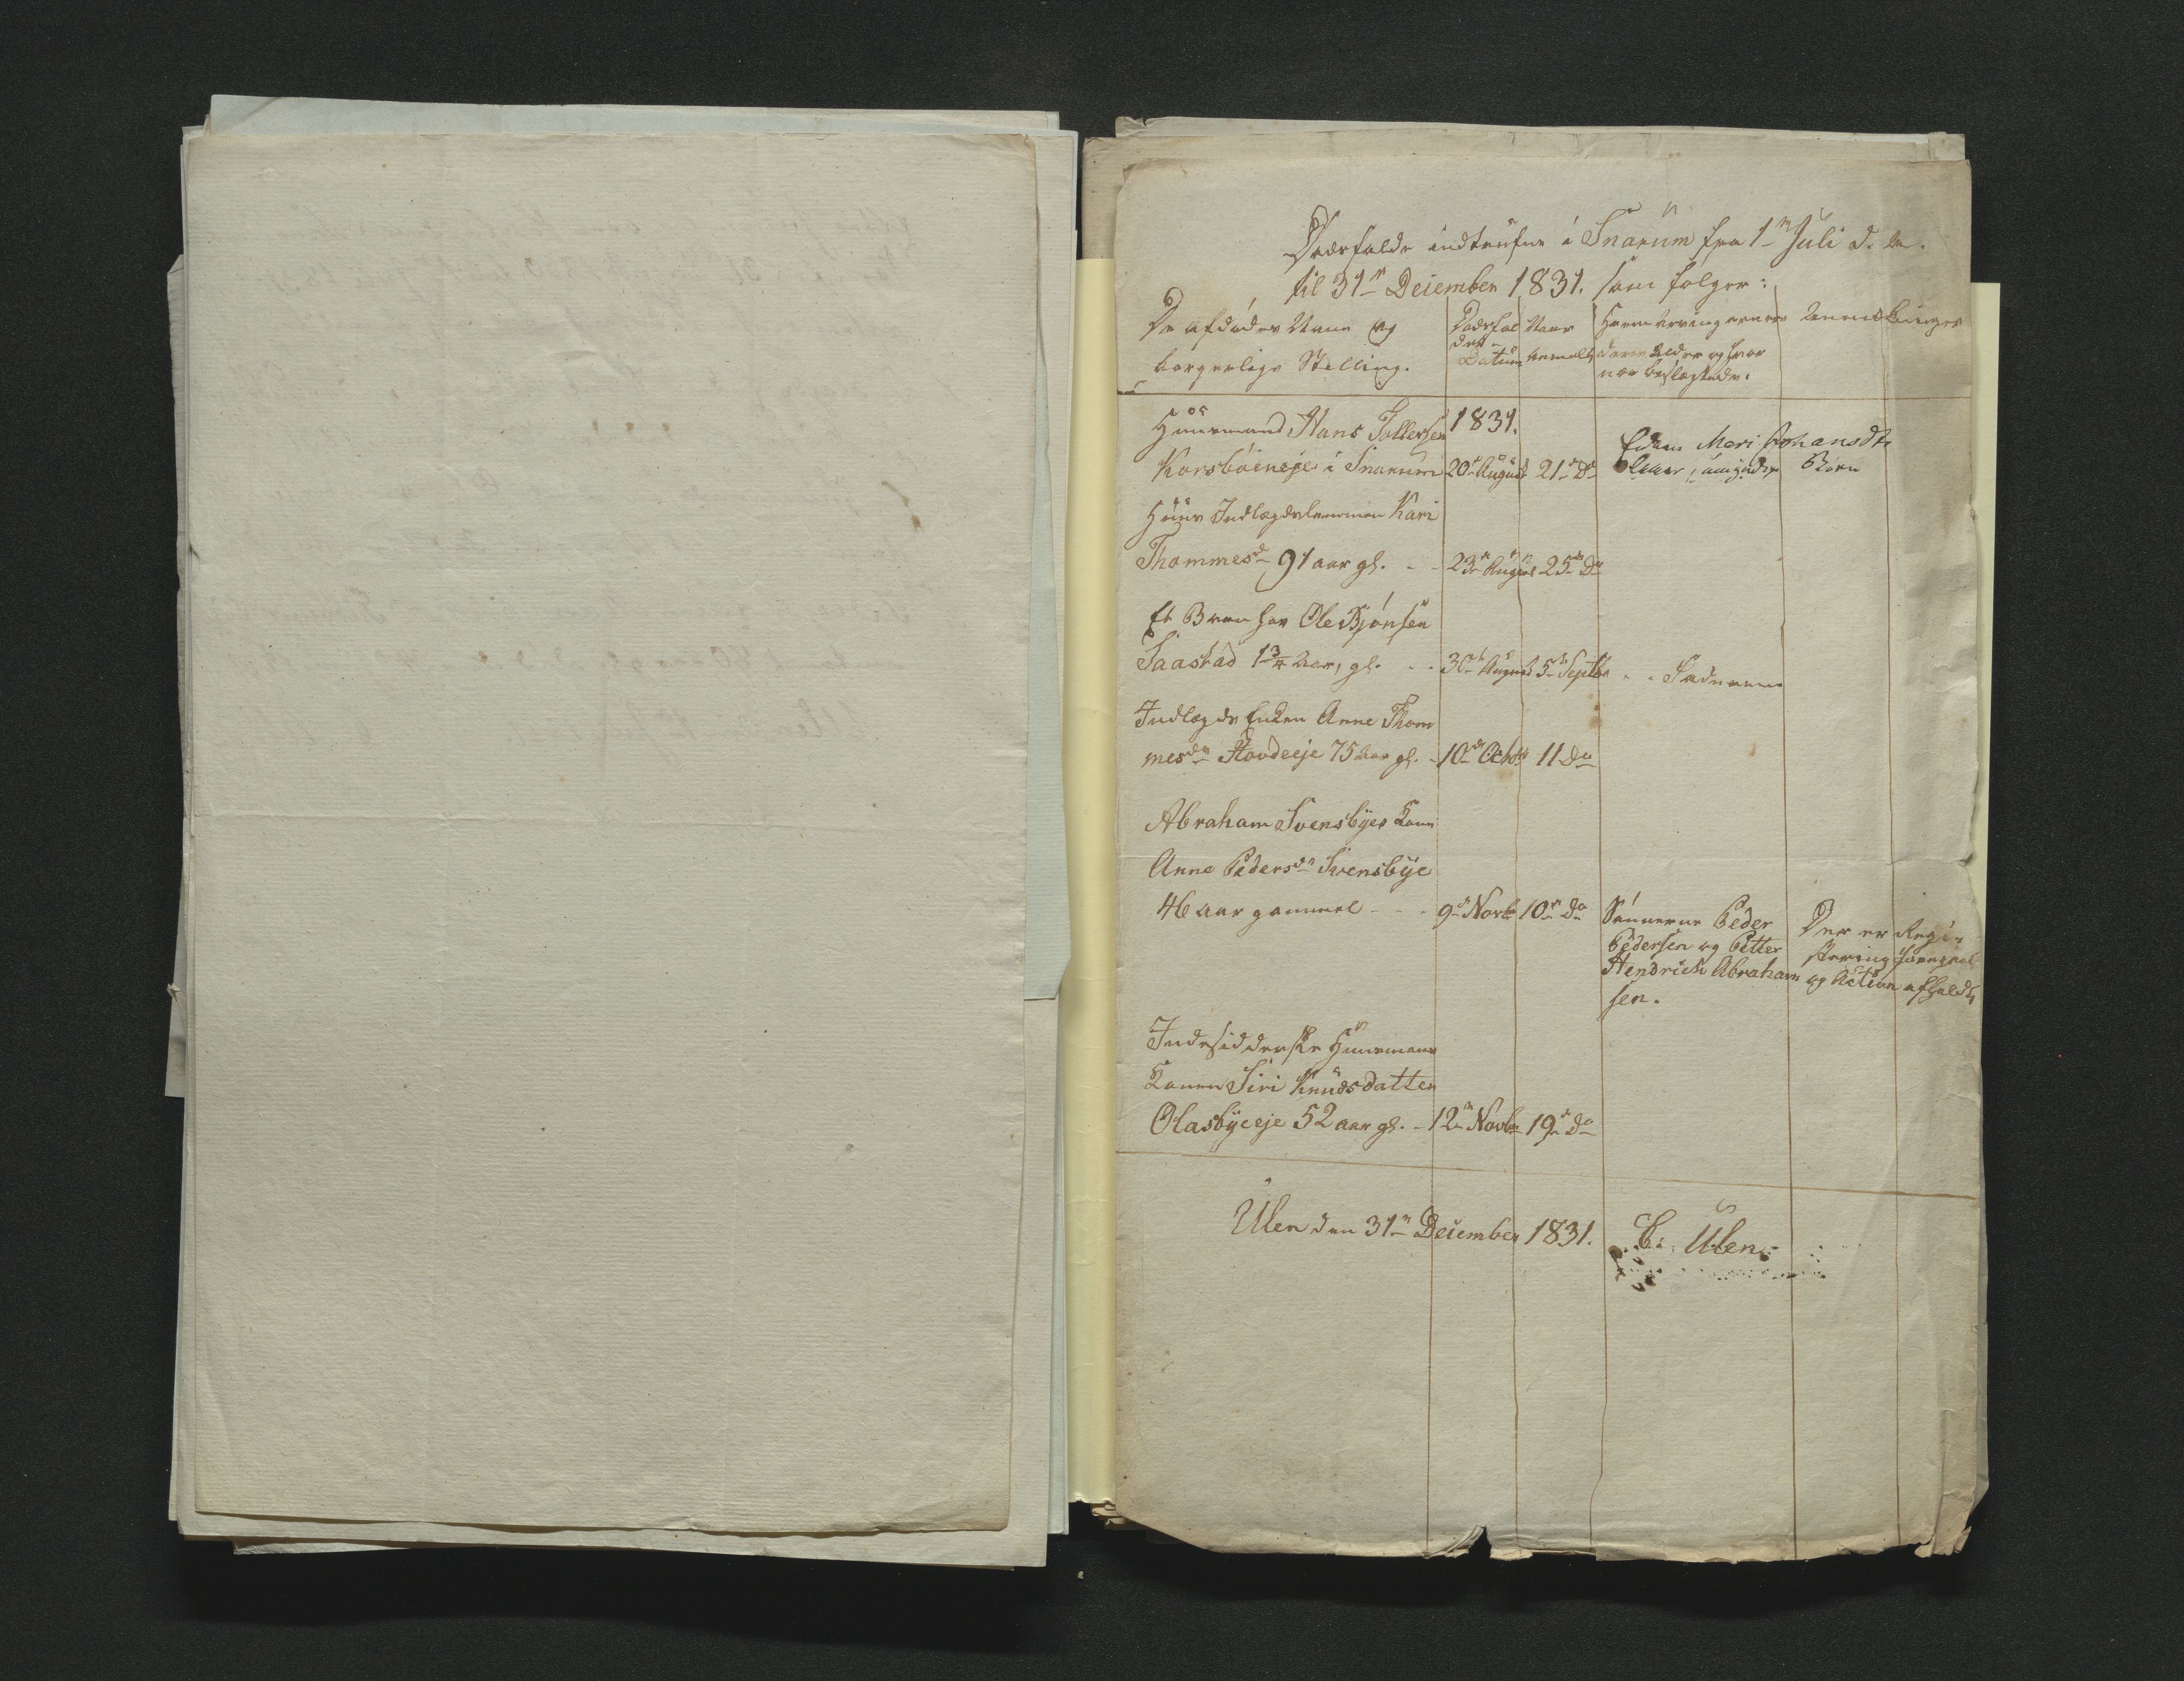 Dødsfalde indtrufne i Snarum fra 1n Juli d. A.
til 31n Deiember 1831. som følger:
De afdødes Navn og
borgerlige Stilling.
Dødsfal
dets
Datum
Naar
anmeldt
Hvem Arvingerne er
deres Alder og hvor
nær beslægtede.
Anmærkninger
Huusmand Hans Tollefsen
Korsbøineje i Snarum
1831.
20de August
21de Do
Enken Mari Johansdtr
umyndige Børn
Huus Indlægdslemmen Kari
Thommesd 91 aar gl. - - 23de August 25de Do
Et Barn hos Ole Bjønsen
Saastad 1 3/4 Aar, gl. - - 30de August 5te Septbr - - Faderen
Indlægds Enken Anne Thom
mesdr Hovdeeje 75 Aar gl. - 10de Octbr 11 Do
Abraham Svensbyes Kone
Anne Pedersdr Svensbye
46 aar gammel - - - 9de Novbr 10de Do
Sønnerne Peder
Pedersen og Petter
Hendrich Abraham
sen.
Der er Regi-
stering foregaaet
og Action afholdt
Indesidderske Huusmands
Konen Siri Knudsdatter
Olasbyeeje 52 aar gl. - 12te Novbr 19de Do
Ulen den 31n Deiember 1831.
C: Ulen